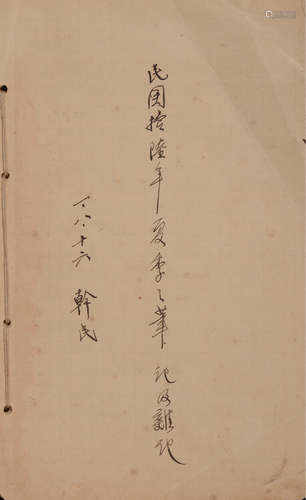 民国拾陸年夏季之筆记及雜记
一八·十六 幹民